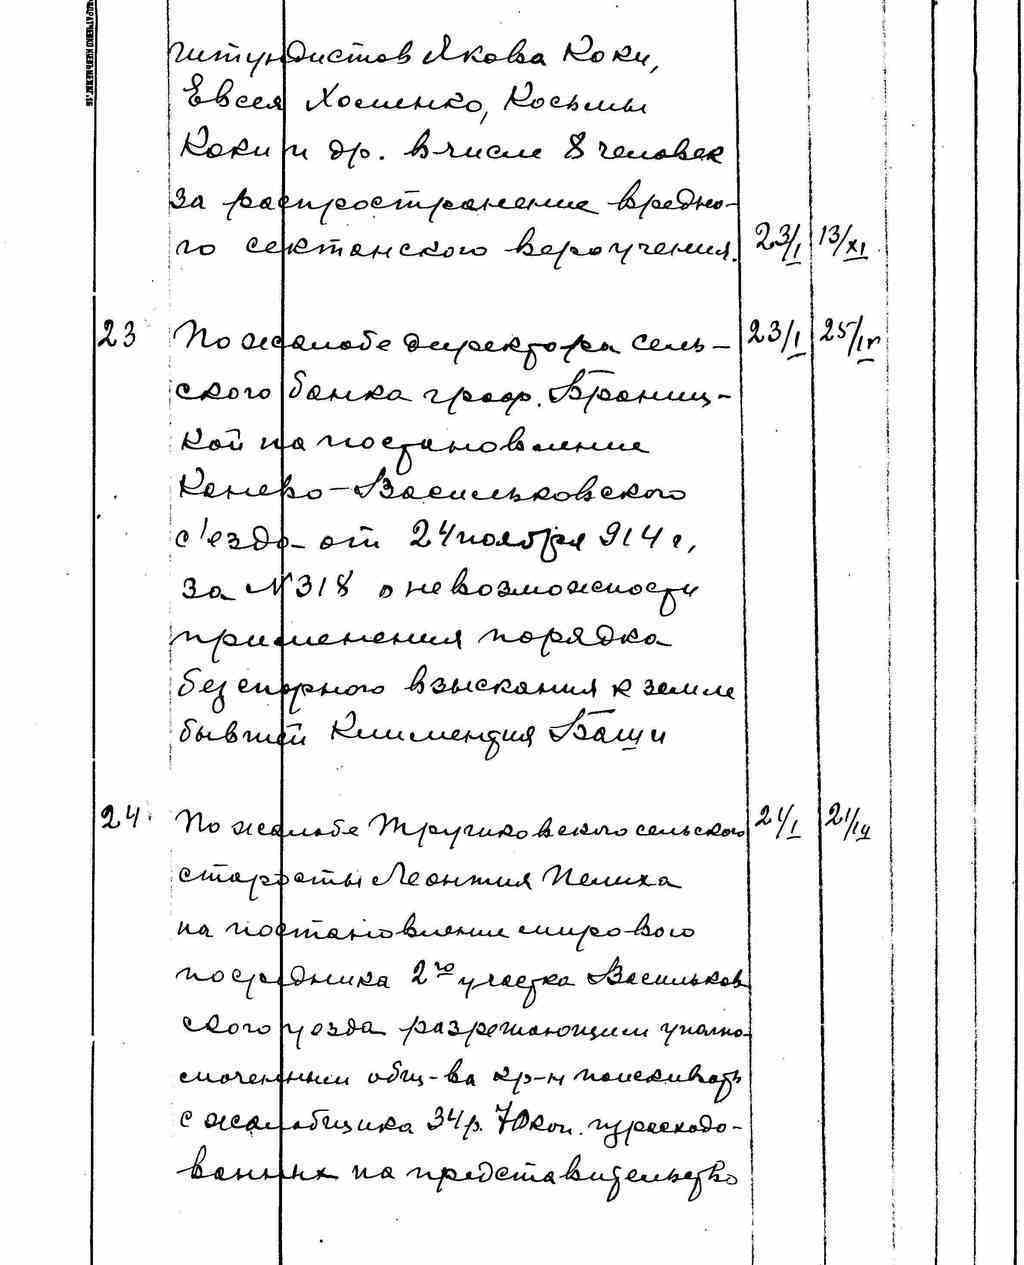 штундистов Якова Коки,
Евсея Хоменко, Косьмы
Коки и др. в числе 8 человек
за распространение вредно-
го сектанского вероучения. 23/I 13/XI
23 По жалобе директора сель- 23/I 25/IV
ского банка граф. Браниц-
кой на постановление
Канево-Васильковского
с'езда от 24 ноября 914 г.,
за №318 о невозможности
применения порядка
безспорного взыскания к земле
бывшей Климентия Бащи
24. По жалобе сельского 24/I 21/IV
старосты Леонтия Пелиха
на постановление мирового
посредника 2го участка Васильков
ского уезда разрешающим уполно-
моченным общ-ва кр-н поискивать
с жалобщика 34р. 70 коп. израсходо-
ванных на представительство